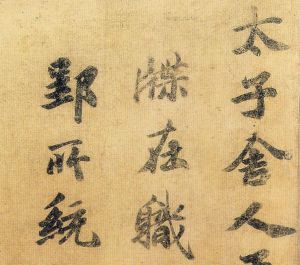 太子舍人
牒在職
郢所統